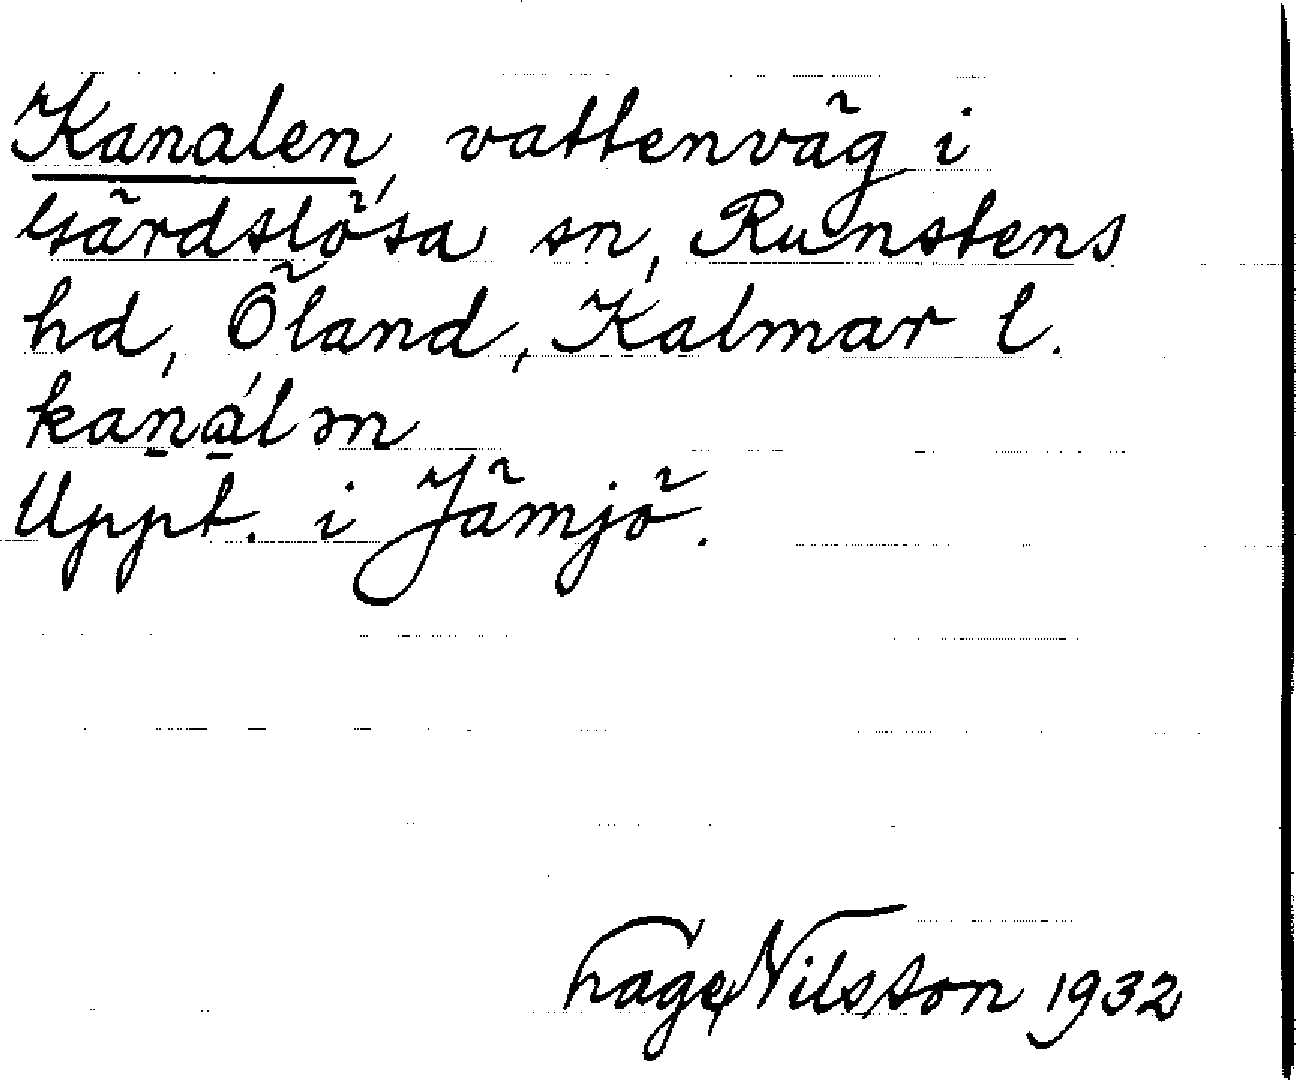 Kanalen, vattenväg i
Gärdslösa sn, Runstens
hd, Öland, Kalmar l.
kaṉá̱l ən
Uppt. i Jämjö.
Tage Nilsson 1932